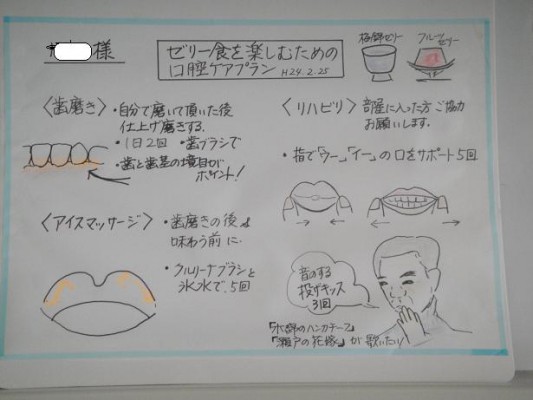 様
ゼリー食を楽しむための
口腔ケアプラン H24.2.25
梅酒ゼリー
フルーツ
ゼリー
〈歯磨き〉
・自分で磨いて頂いた後
仕上げ磨きする.
・1日2回 ・歯ブラシで
・歯と歯茎の境目が
ポイント!
〈アイスマッサージ〉
・歯磨きの後や
味わう前に
・クルリーナブラシと
氷水で、5回
〈リハビリ〉
部屋に入った方ご協力
お願いします.
・指で「ウー」「イー」の口をサポート5回
音のする
投げキッス
3回
「水色のハンカチーフ」
「瀬戸の花嫁」が歌いたい